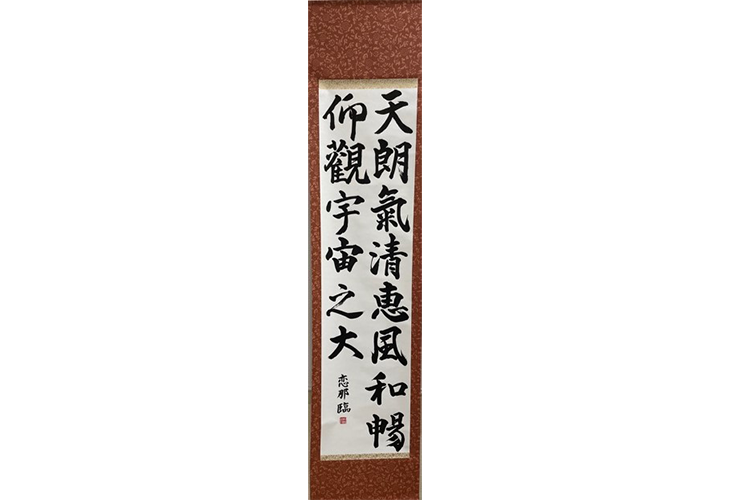 天朗氣清恵風和暢
仰觀宇宙之大
恋那臨